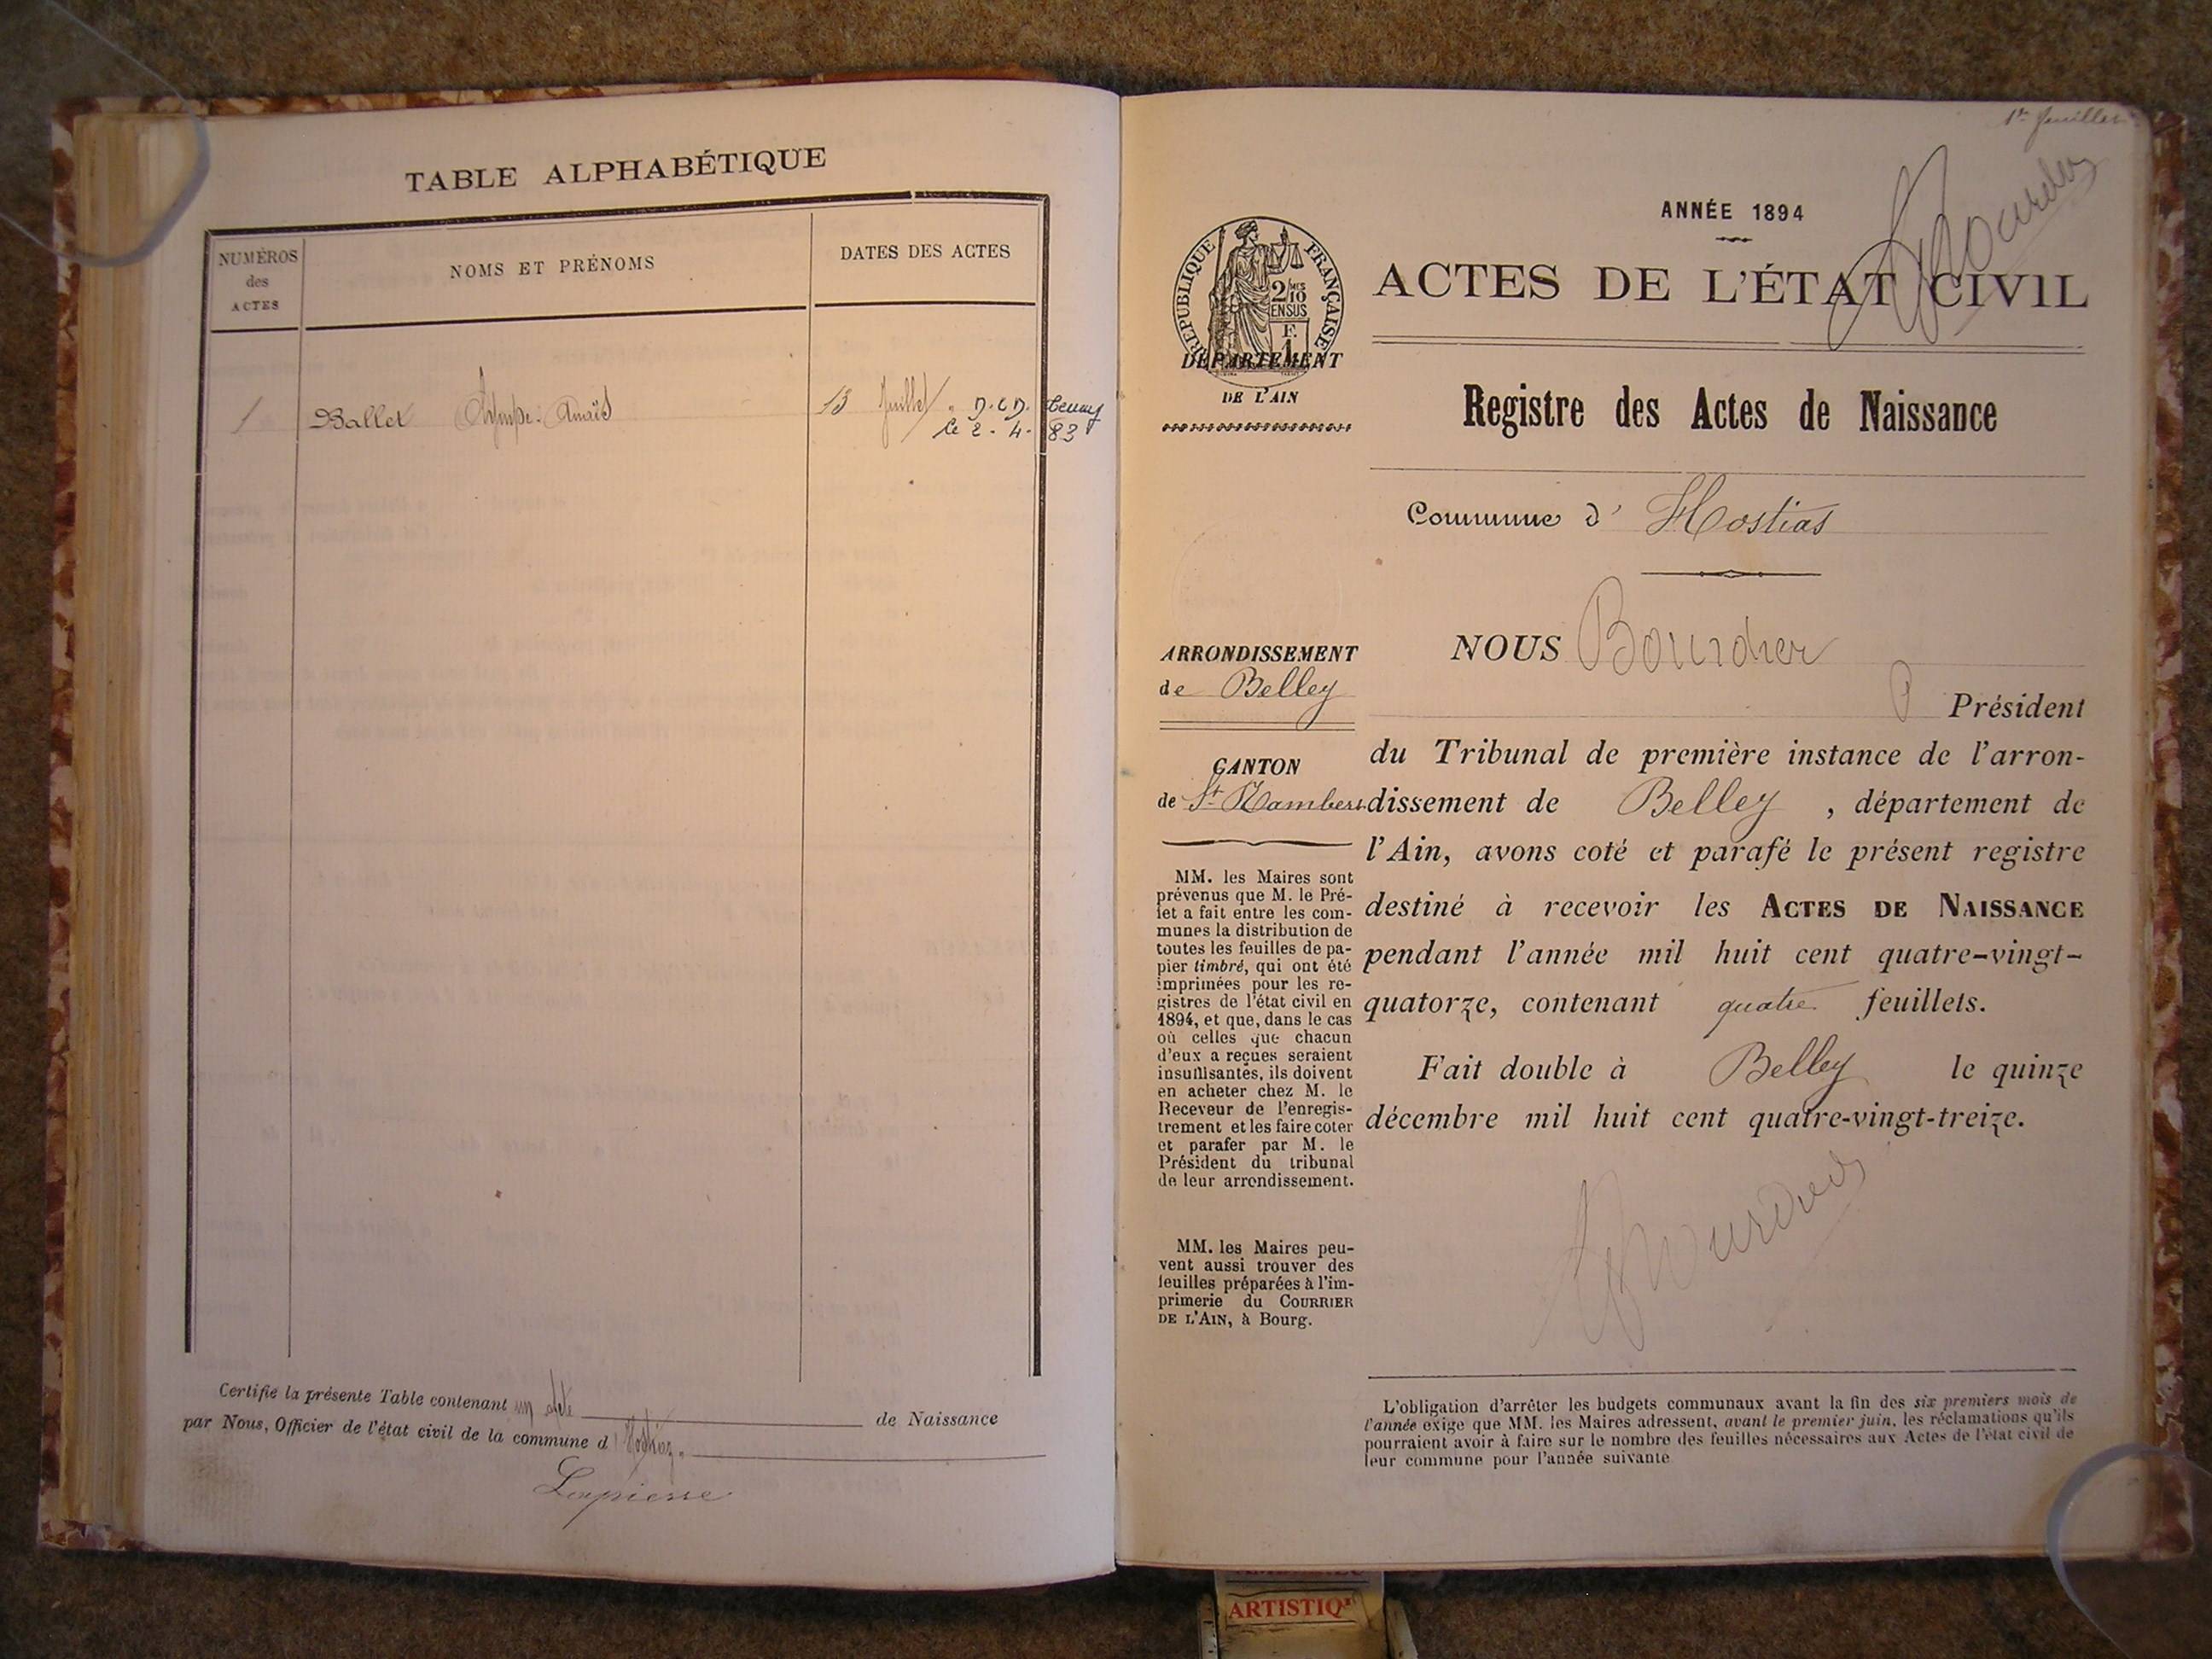 TABLE ALPHABÉTIQUE
NUMÉROS
des
ACTES
NOMS ET PRÉNOMS
DATES DES ACTES
1 Ballet Olympe Anaïs 13 Juillet " D.C.D.
le 2 . 4 . 83
Certifie la présente Table contenant un acte de Naissance
par Nous, Officier de l'état civil de la commune d'Hostiaz.
Lapierre
1er feuillet
Bourdier
ANNÉE 1894
ACTES DE L'ÉTAT CIVIL
RÉPUBLIQUE FRANÇAISE
2/10MES
EN SUS
F.
1
DÉPARTEMENT
DE L'AIN
Registre des Actes de Naissance
Commune d' Hostias
ARRONDISSEMENT
de Belley
CANTON
de St Rambert
MM. les Maires sont
prévenus que M. le Pré-
fet a fait entre les com-
munes la distribution de
toutes les feuilles de pa-
pier timbré, qui ont été
imprimées pour les re-
gistres de l'état civil en
1894, et que, dans le cas
où celles que chacun
d'eux a reçues seraient
insuffisantes, ils doivent
en acheter chez M. le
Receveur de l'enregis-
trement et les faire coter
et parafer par M. le
Président du tribunal
de leur arrondissement.
MM. les Maires peu-
vent aussi trouver des
feuilles préparées à l'im-
primerie du COURRIER
DE L'AIN, à Bourg.
NOUS Bourdier
Président
du Tribunal de première instance de l'arron-
dissement de Belley , département de
l'Ain, avons coté et parafé le présent registre
destiné à recevoir les ACTES DE NAISSANCE
pendant l'année mil huit cent quatre-vingt-
quatorze, contenant quatre feuillets.
Fait double à Belley le quinze
décembre mil huit cent quatre-vingt-treize.
Bourdier
L'obligation d'arrêter les budgets communaux avant la fin des six premiers mois de
l'année exige que MM. les Maires adressent, avant le premier juin, les réclamations qu'ils
pourraient avoir à faire sur le nombre des feuilles nécessaires aux Actes de l'état civil de
leur commune pour l'année suivante
ARTISTIQ